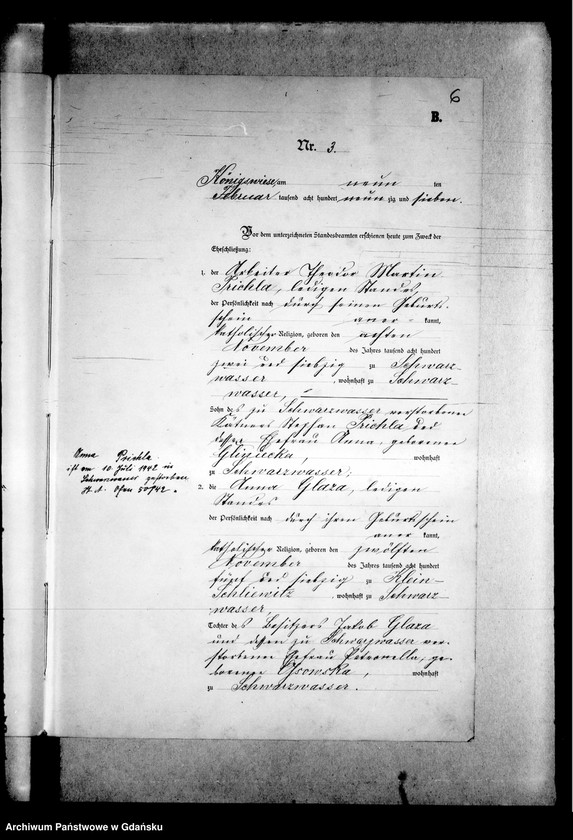 6
B.
Nr. 3.
Königswiese am neun ten
Februar tausend acht hundert neunzig und sieben.
Vor dem unterzeichneten Standesbeamten erschienen heute zum Zweck der
Eheschließung:
1. der Arbeiter Theodor Martin
Prichla, ledigen Standes,
der Persönlichkeit nach durch seinen Geburts-
schein aner- kannt,
katholischer Religion, geboren den achten
November des Jahres tausend acht hundert
zwei und siebzig zu Schwarz-
wasser, wohnhaft zu Schwarz-
wasser,
Sohn des zu Schwarzwasser verstorbenen
Käthners Stephan Prichla und
dessen Ehefrau Anna, geborenen
wohnhaft
zu Schwarzwasser;
2. die Anna Glaza, ledigen
Standes
der Persönlichkeit nach durch ihren Geburtsschein
aner kannt,
katholischer Religion, geboren den zwölften
November des Jahres tausend acht hundert
fünf und siebzig zu Klein-
Schliewitz, wohnhaft zu Schwarz-
wasser
Tochter des Besitzers Jakob Glaza
und dessen zu Schwarzwasser ver-
storbenen Ehefrau Petronella, ge-
borenen Ossowska, wohnhaft
zu Schwarzwasser.
Anna Prichla
ist am 10. Juli 1942 in
Schwarzwasser gestorben
St. A. Ofen 50/42.
Archiwum Państwowe w Gdańsku